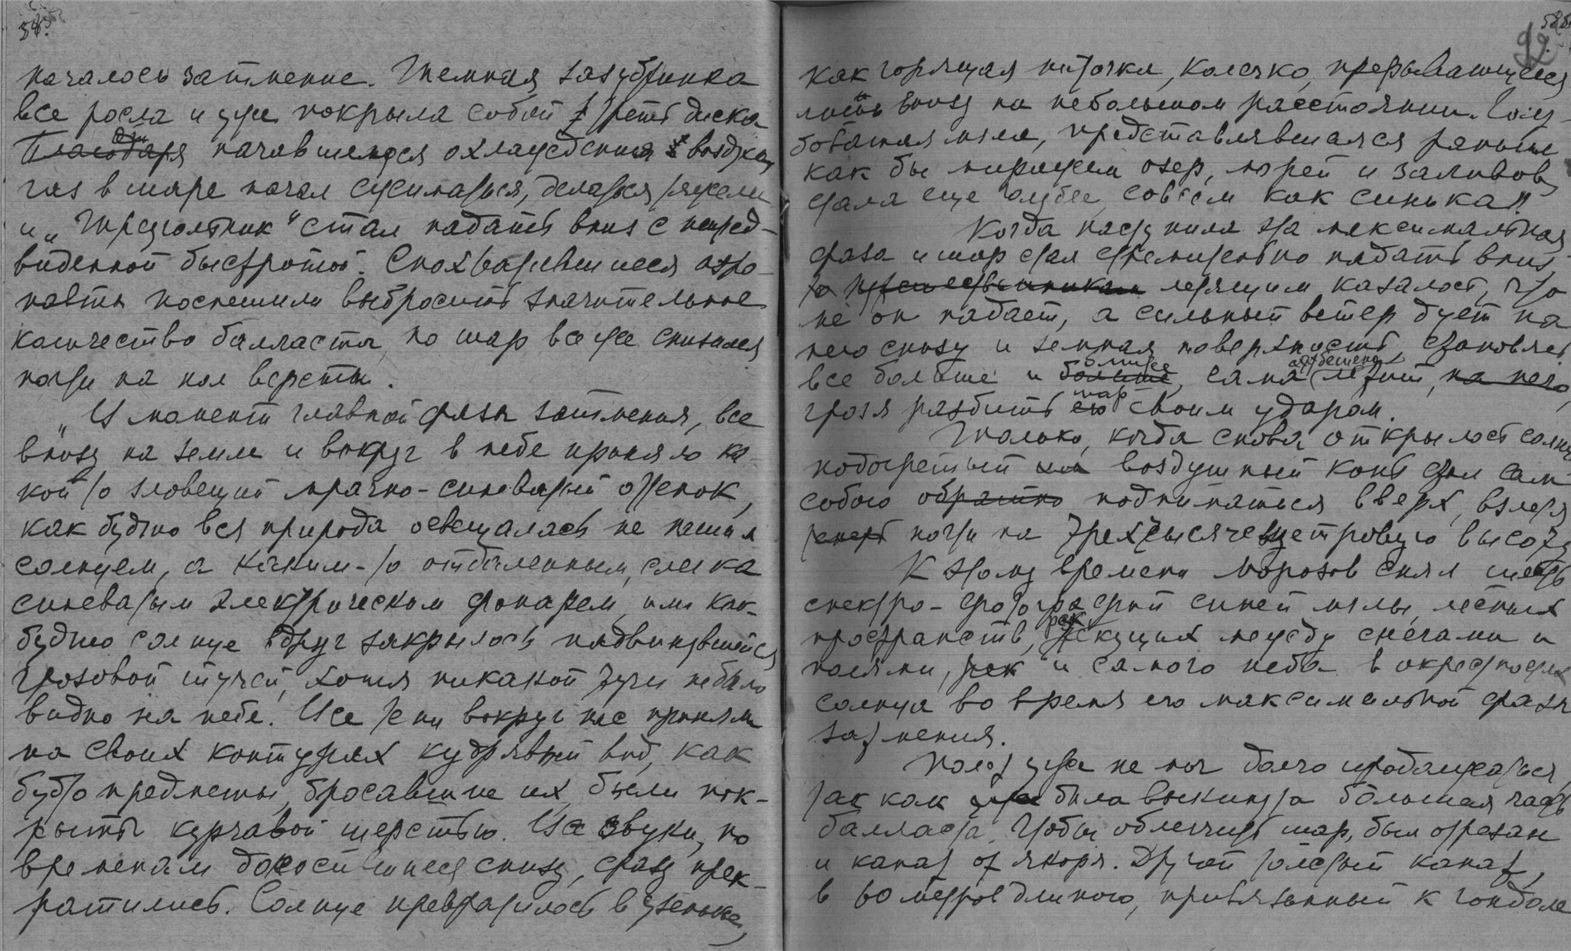 началось затмение. Темная зазубринка
все росла и уже покрыла собой треть диска
Благодаря начавшемуся охлаждению воздуха,
газ в шаре начал сжиматься, делаться тяжелей
и „Треугольник" стал падать вниз с непред-
виденной быстротой. Спохватившиеся аэро-
навты поспешили выбросить значительное
количество балласта, но шар все же снизился
почти на пол версты.
„В момент главной фазы затмения, все
внизу на земле и вокруг в небе приняло ка-
кой-то зловещий мрачно-синеватый оттенок,
как будто вся природа освещалась не нашим
солнцем, а каким-то отдаленным, слегка
синеватым электрическим фонарем, или как
будто солнце вдруг закрылось надвинувшейся
грозовой тучей, хотя никакой тучи не было
видно на небе. Все тени вокруг нас приняли
на своих контурах кудрявый вид, как
будто предметы, бросавшие их, были пок-
рыты курчавой шерстью. Все звуки, по
временам доносившиеся снизу, сразу прек-
ратились. Солнце превратилось в узенькое,
58.
как горящая ниточка, колечко, прерывающееся
лишь внизу на небольшом расстоянии. Голу-
боватая мгла, представлявшаяся раньше
как бы миражем озер, морей и заливов,
стала еще голубее, совсем как синька".
Когда наступила эта максимальная
фаза и шар стал стремительно падать вниз,
летящим казалось, что
не он падает, а сильный ветер дует на
него снизу и земная поверхность, становясь
все больше и больше ближе, сама летит, на него,
грозя разбить его шар своим ударом.
Только, когда снова открылось солнце
подогретый воздушный конь стал сам
собою обратно подниматься вверх, взлетя
почти на трехтысячеметровую высоту
К этому времени Морозов снял шесть
спектро-фотографий синей мглы, лесных
пространств, рек, текущих между снегами и
полями, рек и самого неба в окрестностях
солнца во время его максимальной фазы
затмения.
Полет уже не мог долго продолжаться,
так как уже была выкинута большая часть
балласта. Чтобы облегчить шар, был отрезан
и канат от якоря. Другой толстый канат,
в 60 метров длиною, привязанный к гондоле